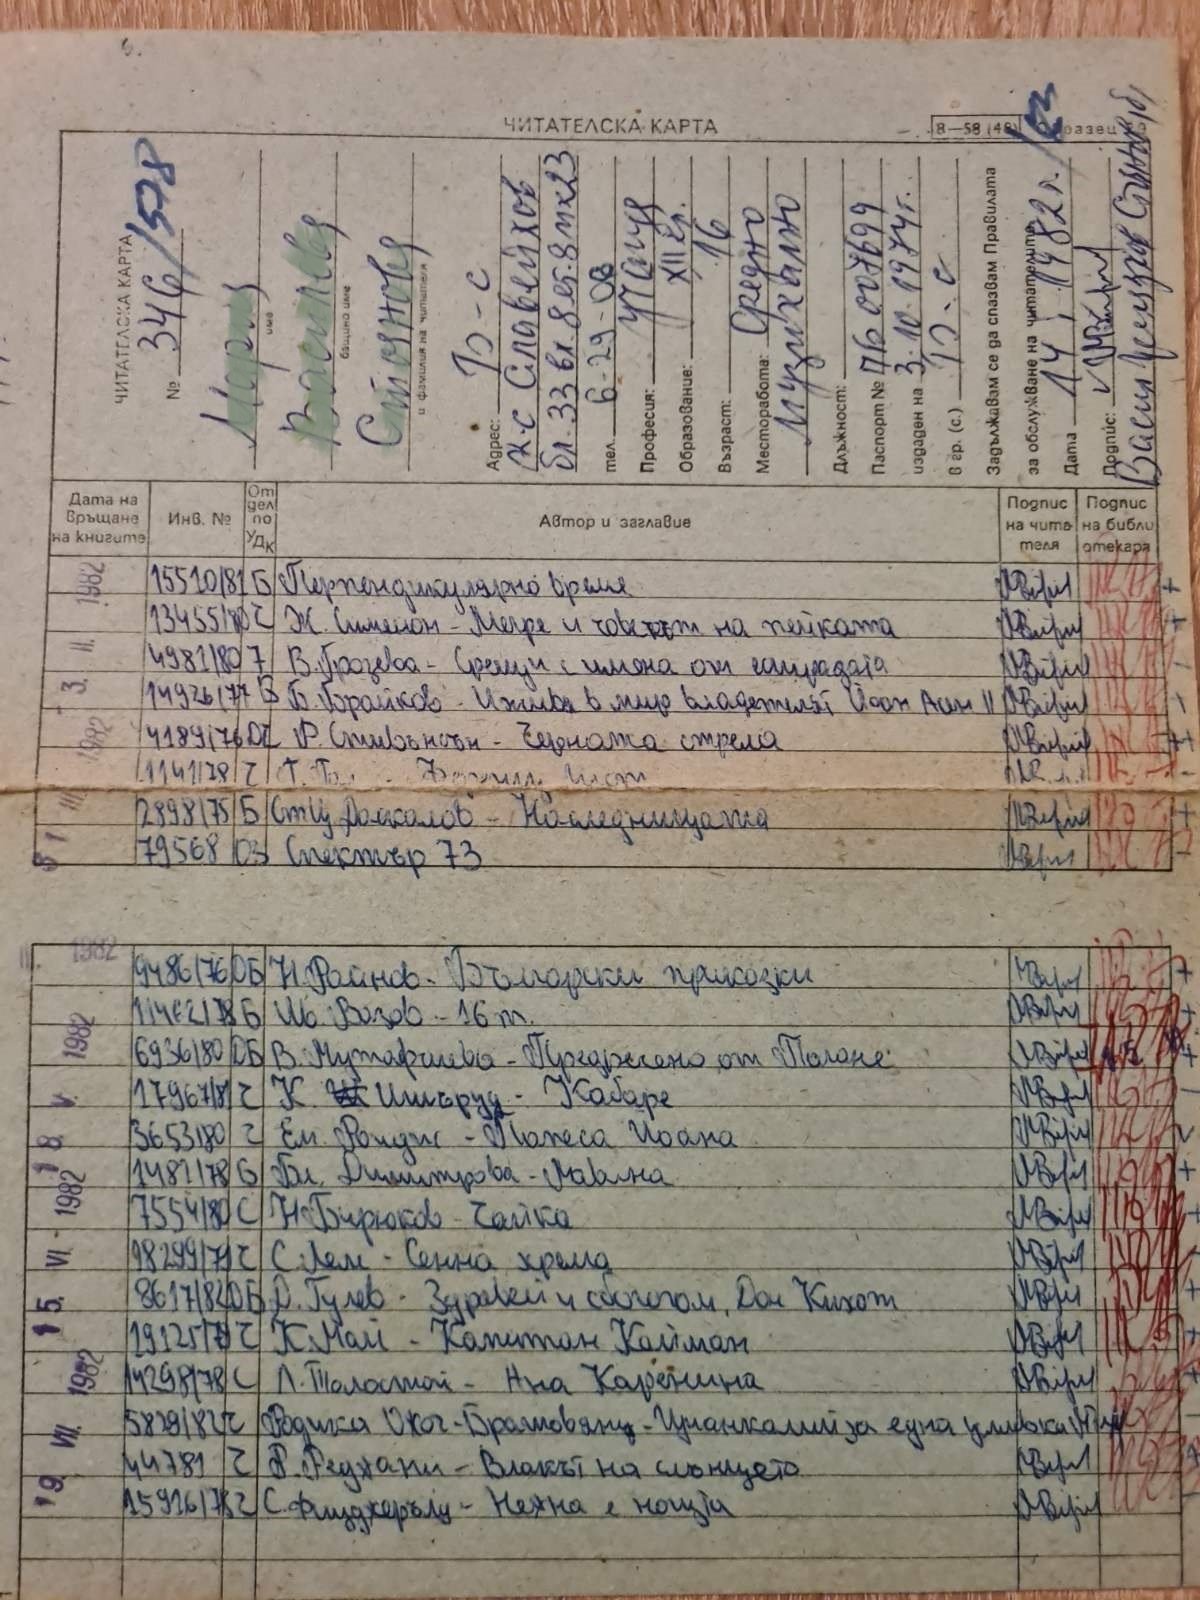 ЧИТАТЕЛСКА КАРТА
8—58 (48) Образец
ЧИТАТЕЛСКА КАРТА
№ 346/578
Мария
име
Василева
бащино име
Стоянова
и фамилия на читателя
Адрес: Б-с
ж.с Славейков
бл. 33 вх. 8 ет. 8 тх23
тел. 6-29-03
Професия: ученичка
Образование: XII гр.
Възраст: 16
Месторабота: Средно
музикално
Длъжност:
Паспорт № ПБ 007699
издаден на 3.10.1974г.
в гр. (с.) Б-с
Задължавам се да спазвам Правилата
за обслужване на читателите
Дата 14. 1982 г.
Подпис:
Васил
Дата на връщане на книгите
Инв. №
Отдел по УДК
Автор и заглавие
Подпис на читателя
Подпис на библиотекаря
15510/81 Б Перпендикулярно време +
13455/80 Ч Ж. Сименон - Мегре и човекът на пейката +
4981/80 7 В. Грозева - Срещи с имена от сцената -
14926/77 Б Б. Брайков - Ихива в мир владетелят Йоан Асен II +
4189/76 ДЧ Р. Стивънсън - Черната стрела ++
1141/78 Ч -
2898/75 Б СтЦ. Даскалов - Наследницата +
79568 ОЗ Спектър 73 -
3. II. 1982
III 1982
9486/76 ДБ Н. Райнов - Български приказки +
11462/78 Б Ив. Вазов - 16 т. +
6936/80 ДБ В. Мутафчиева - Предречено от Пагане +
17967/81 Ч К. Ишъруд - Кабаре -
3653/80 Ч Ем. Роидис - Папеса Йоана
1481/78 Б Бл. Димитрова - Лавина +
7554/80 С Н. Бирюков - Чайка +
98299/71 Ч С. Лем - Сенна хрема
8617/82 ДБ Д. Гулев - Здравей и сбогом, Дон Кихот +
19125/79 Ч К. Май - Капитан Кайман +
14298/78 С Л. Толстой - Ана Каренина +
5829/82 Ч Родика Ожог-Брашовяну - за една улика -
44781 Ч Р. Реджани - Влакът на слънцето +
15926/78 Ч С. Фицджералд - Нежна е нощта -
1982
18. V. 1982
15. VI. 1982
19. VII. 1982